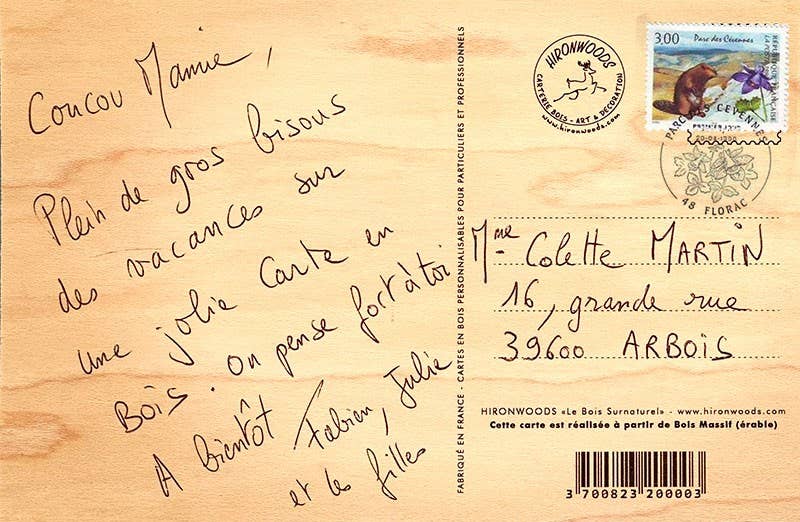 Coucou Mamie,
Plein de gros bisous
des vacances sur
une jolie carte en
Bois. On pense fort à toi
A bientôt Fabien, Julie
et les filles
FABRIQUÉ EN FRANCE - CARTES EN BOIS PERSONNALISABLES POUR PARTICULIERS ET PROFESSIONNELS
HIRONWOODS
CARTERIE BOIS - ART & DECORATION
www.hironwoods.com
3,00
Parc des Cévennes
RÉPUBLIQUE FRANÇAISE
LA POSTE
PARC DES CEVENNES
PREMIER JOUR
48 FLORAC
Mme Colette MARTIN
16, grande rue
39600 ARBOIS
HIRONWOODS «Le Bois Surnaturel» - www.hironwoods.com
Cette carte est réalisée à partir de Bois Massif (érable)
3 700823 200003